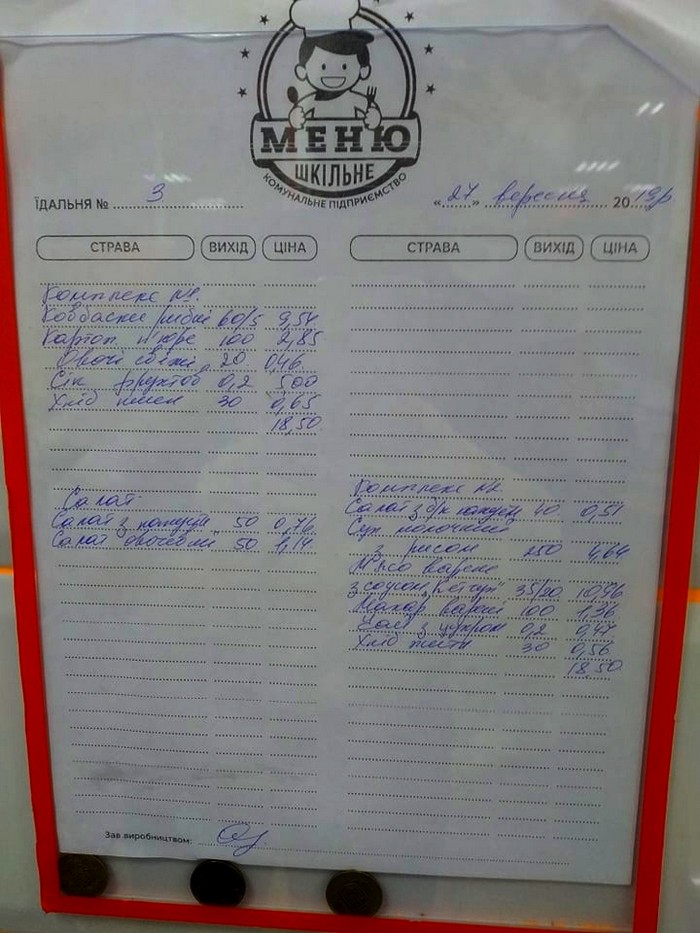 МЕНЮ
ШКІЛЬНЕ
КОМУНАЛЬНЕ ПІДПРИЄМСТВО
ЇДАЛЬНЯ № 3
«27» вересня 2019р
СТРАВА ВИХІД ЦІНА
Комплекс №1
Ковбаски рибні 60/5 9,54
Картоп. п'юре 100 2,85
Овочі свіжі 20 0,46
Сік фруктов 0,2 5,00
Хліб пшен 30 0,65
18,50
Салат
Салат з капусти 50 0,76
Салат овочевий 50 1,14
СТРАВА ВИХІД ЦІНА
Комплекс №2
Салат з б/к капусти 40 0,51
Суп молочний
з рисом 250 4,64
М'ясо варене
з соусом "Кетчуп" 35/20 10,96
Макар. варені 100 1,36
Чай з цукром 0,2 0,47
Хліб житн 30 0,56
18,50
Зав.виробництвом: